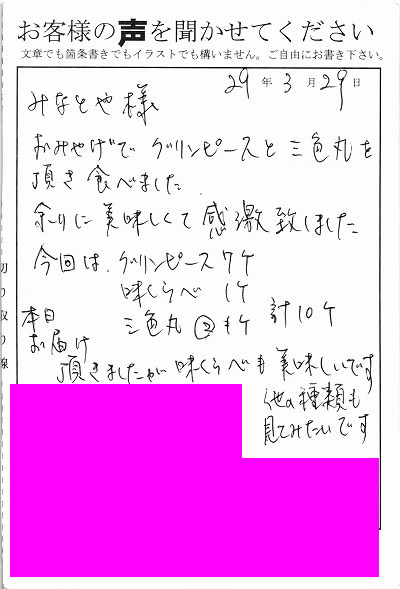 お客様の声を聞かせてください
文章でも箇条書きでもイラストでも構いません。ご自由にお書き下さい。
29年3月29日
みなとや様
おみやげでグリンピースと三色丸を
頂き食べました.
余りに美味しくて感激致しました
今回は、グリンピース7ケ
味くらべ 1ケ
三色丸 ②ケ 計10ケ
本日
お届け
頂きましたが味くらべも美味しいです
他の種類も
見てみたいです
切り取り線